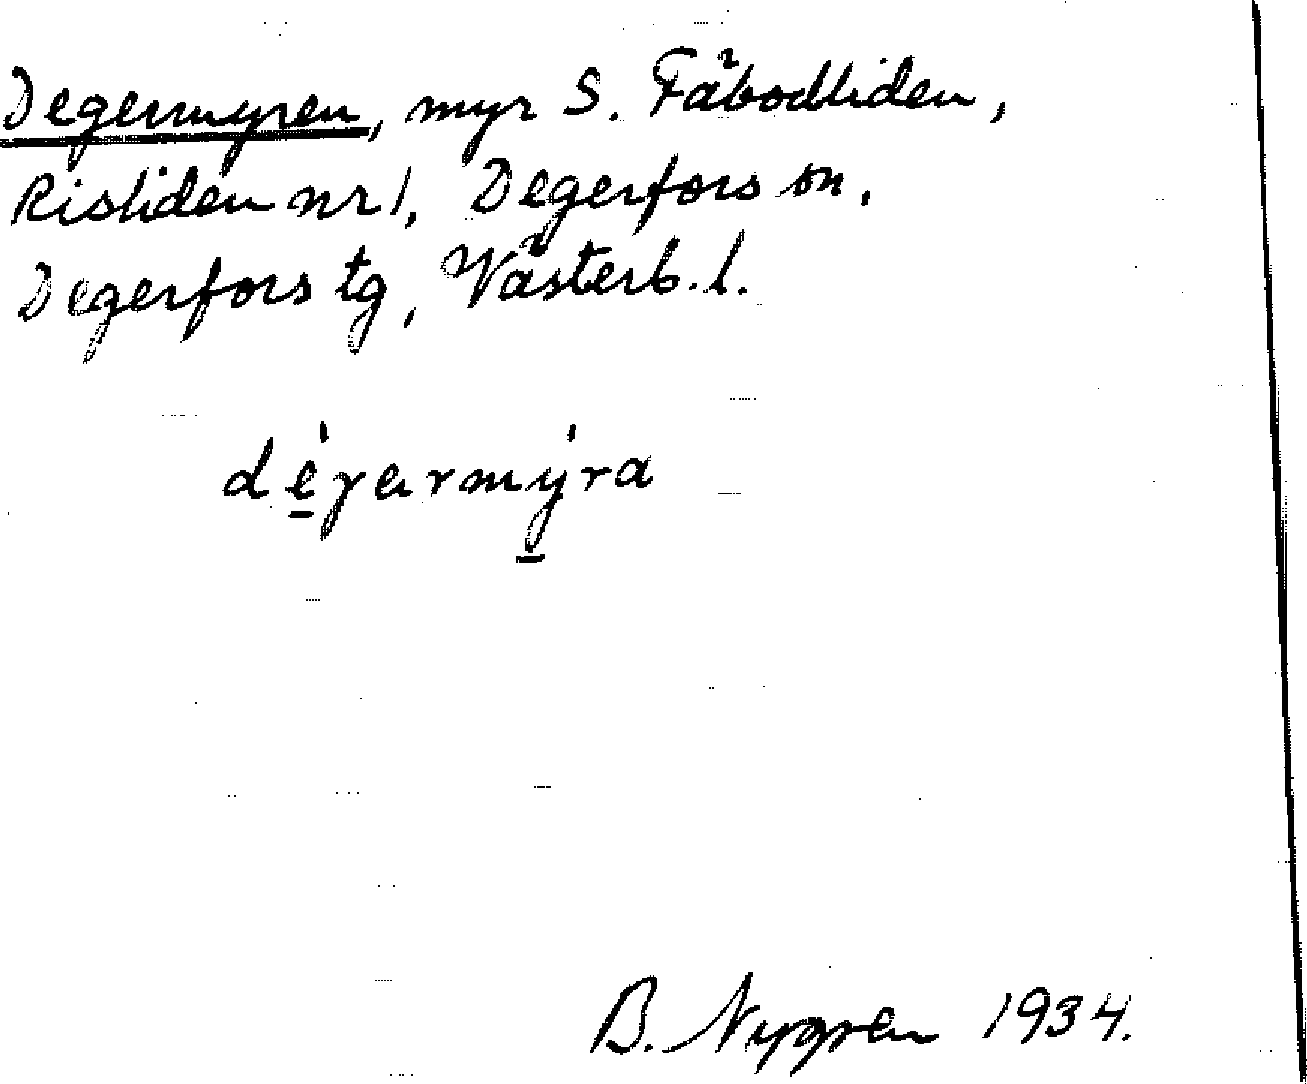 Degermyren, myr S. Fäbodliden,
Risliden nr 1, Degerfors sn.
Degerfors tg, Västerb. l.
dé̱γɐrmý̱ra
B. Nygren 1934.